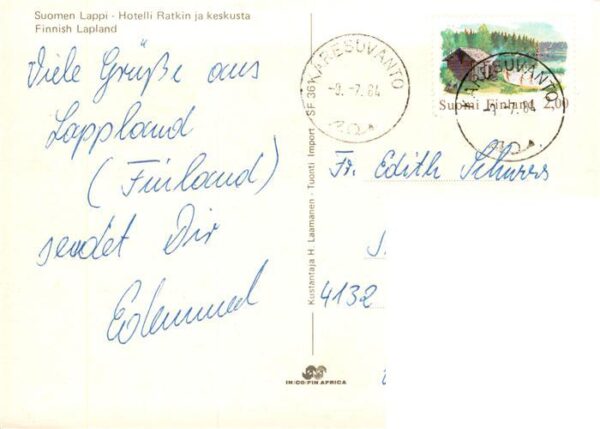 Suomen Lappi - Hotelli Ratkin ja keskusta
Finnish Lapland
Viele Grüße aus
Lappland
(Finland)
sendet Dir
Kustantaja H. Laamanen - Tuonti Import - SF 361
KARESUVANTO
-9.-7.84
Suomi Finland 2,00
KARESUVANTO
-7.84
Fr. Edith
4132
IN/CO/FIN AFRICA